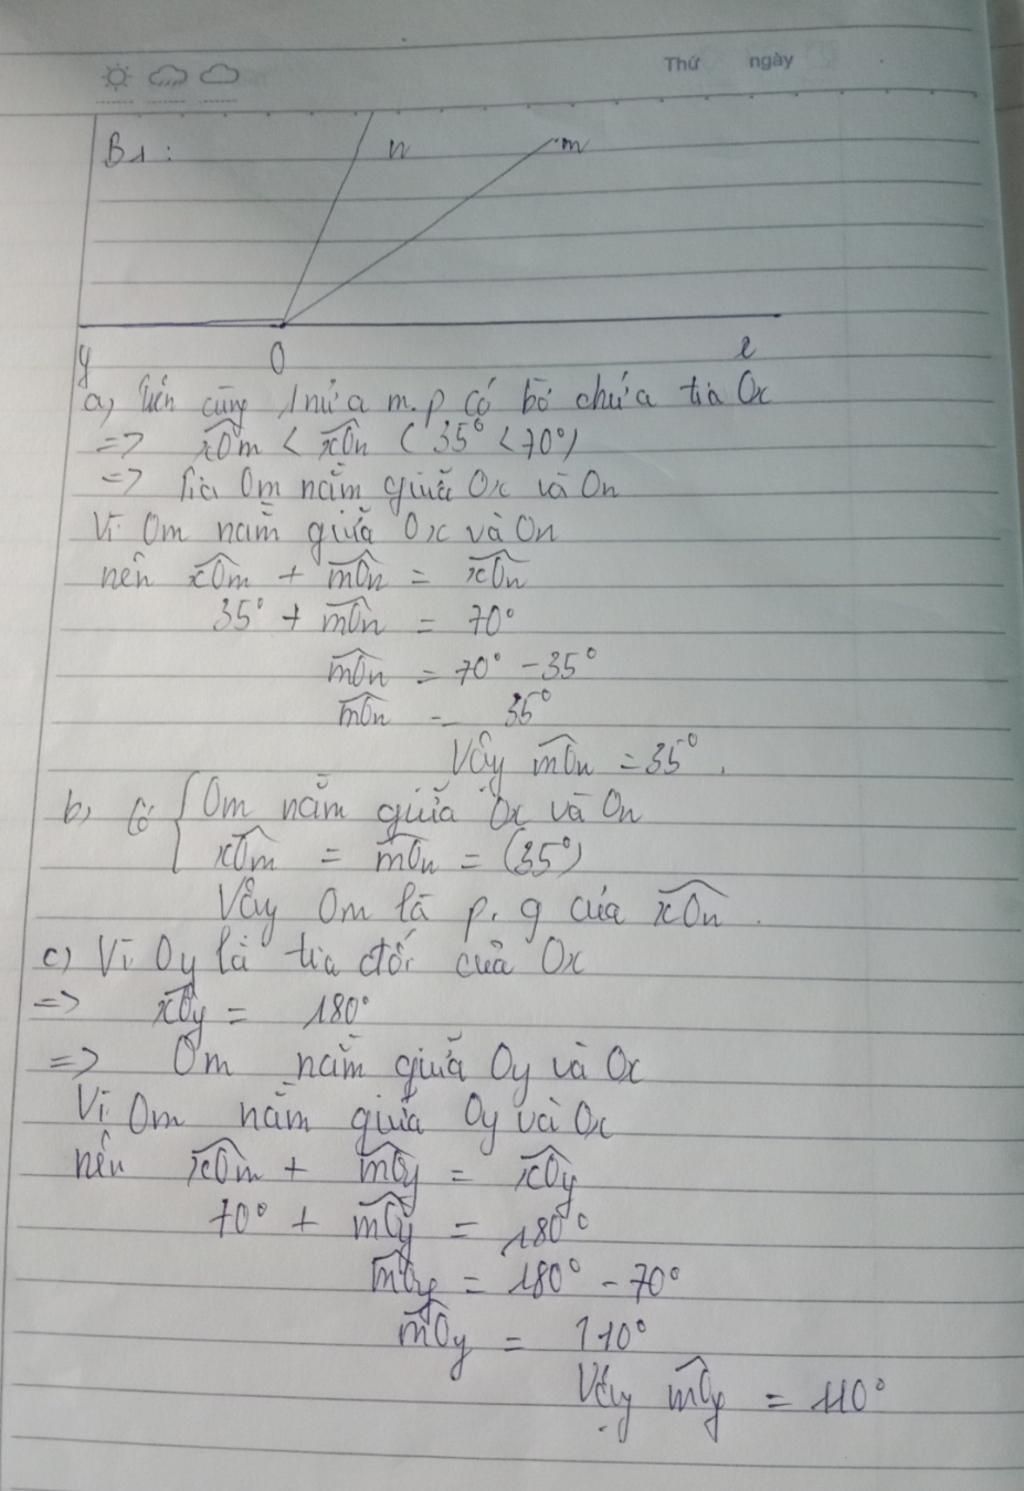 Thứ ngày
B1:
n m
y O x
a, Trên cùng 1 nửa m.p có bờ chứa tia Ox
=> xOm < xOn (35° < 70°)
=> Tia Om nằm giữa Ox và On
Vì Om nằm giữa Ox và On
nên xOm + mOn = xOn
35° + mOn = 70°
mOn = 70° - 35°
mOn = 35°
Vậy mOn = 35°.
b, Có { Om nằm giữa Ox và On
xOm = mOn = (35°)
Vậy Om là p.g của xOn.
c) Vì Oy là tia đối của Ox
=> xOy = 180°
=> Om nằm giữa Oy và Ox
Vì Om nằm giữa Oy và Ox
nên xOm + mOy = xOy
70° + mOy = 180°
mOy = 180° - 70°
mOy = 110°
Vậy mOy = 110°